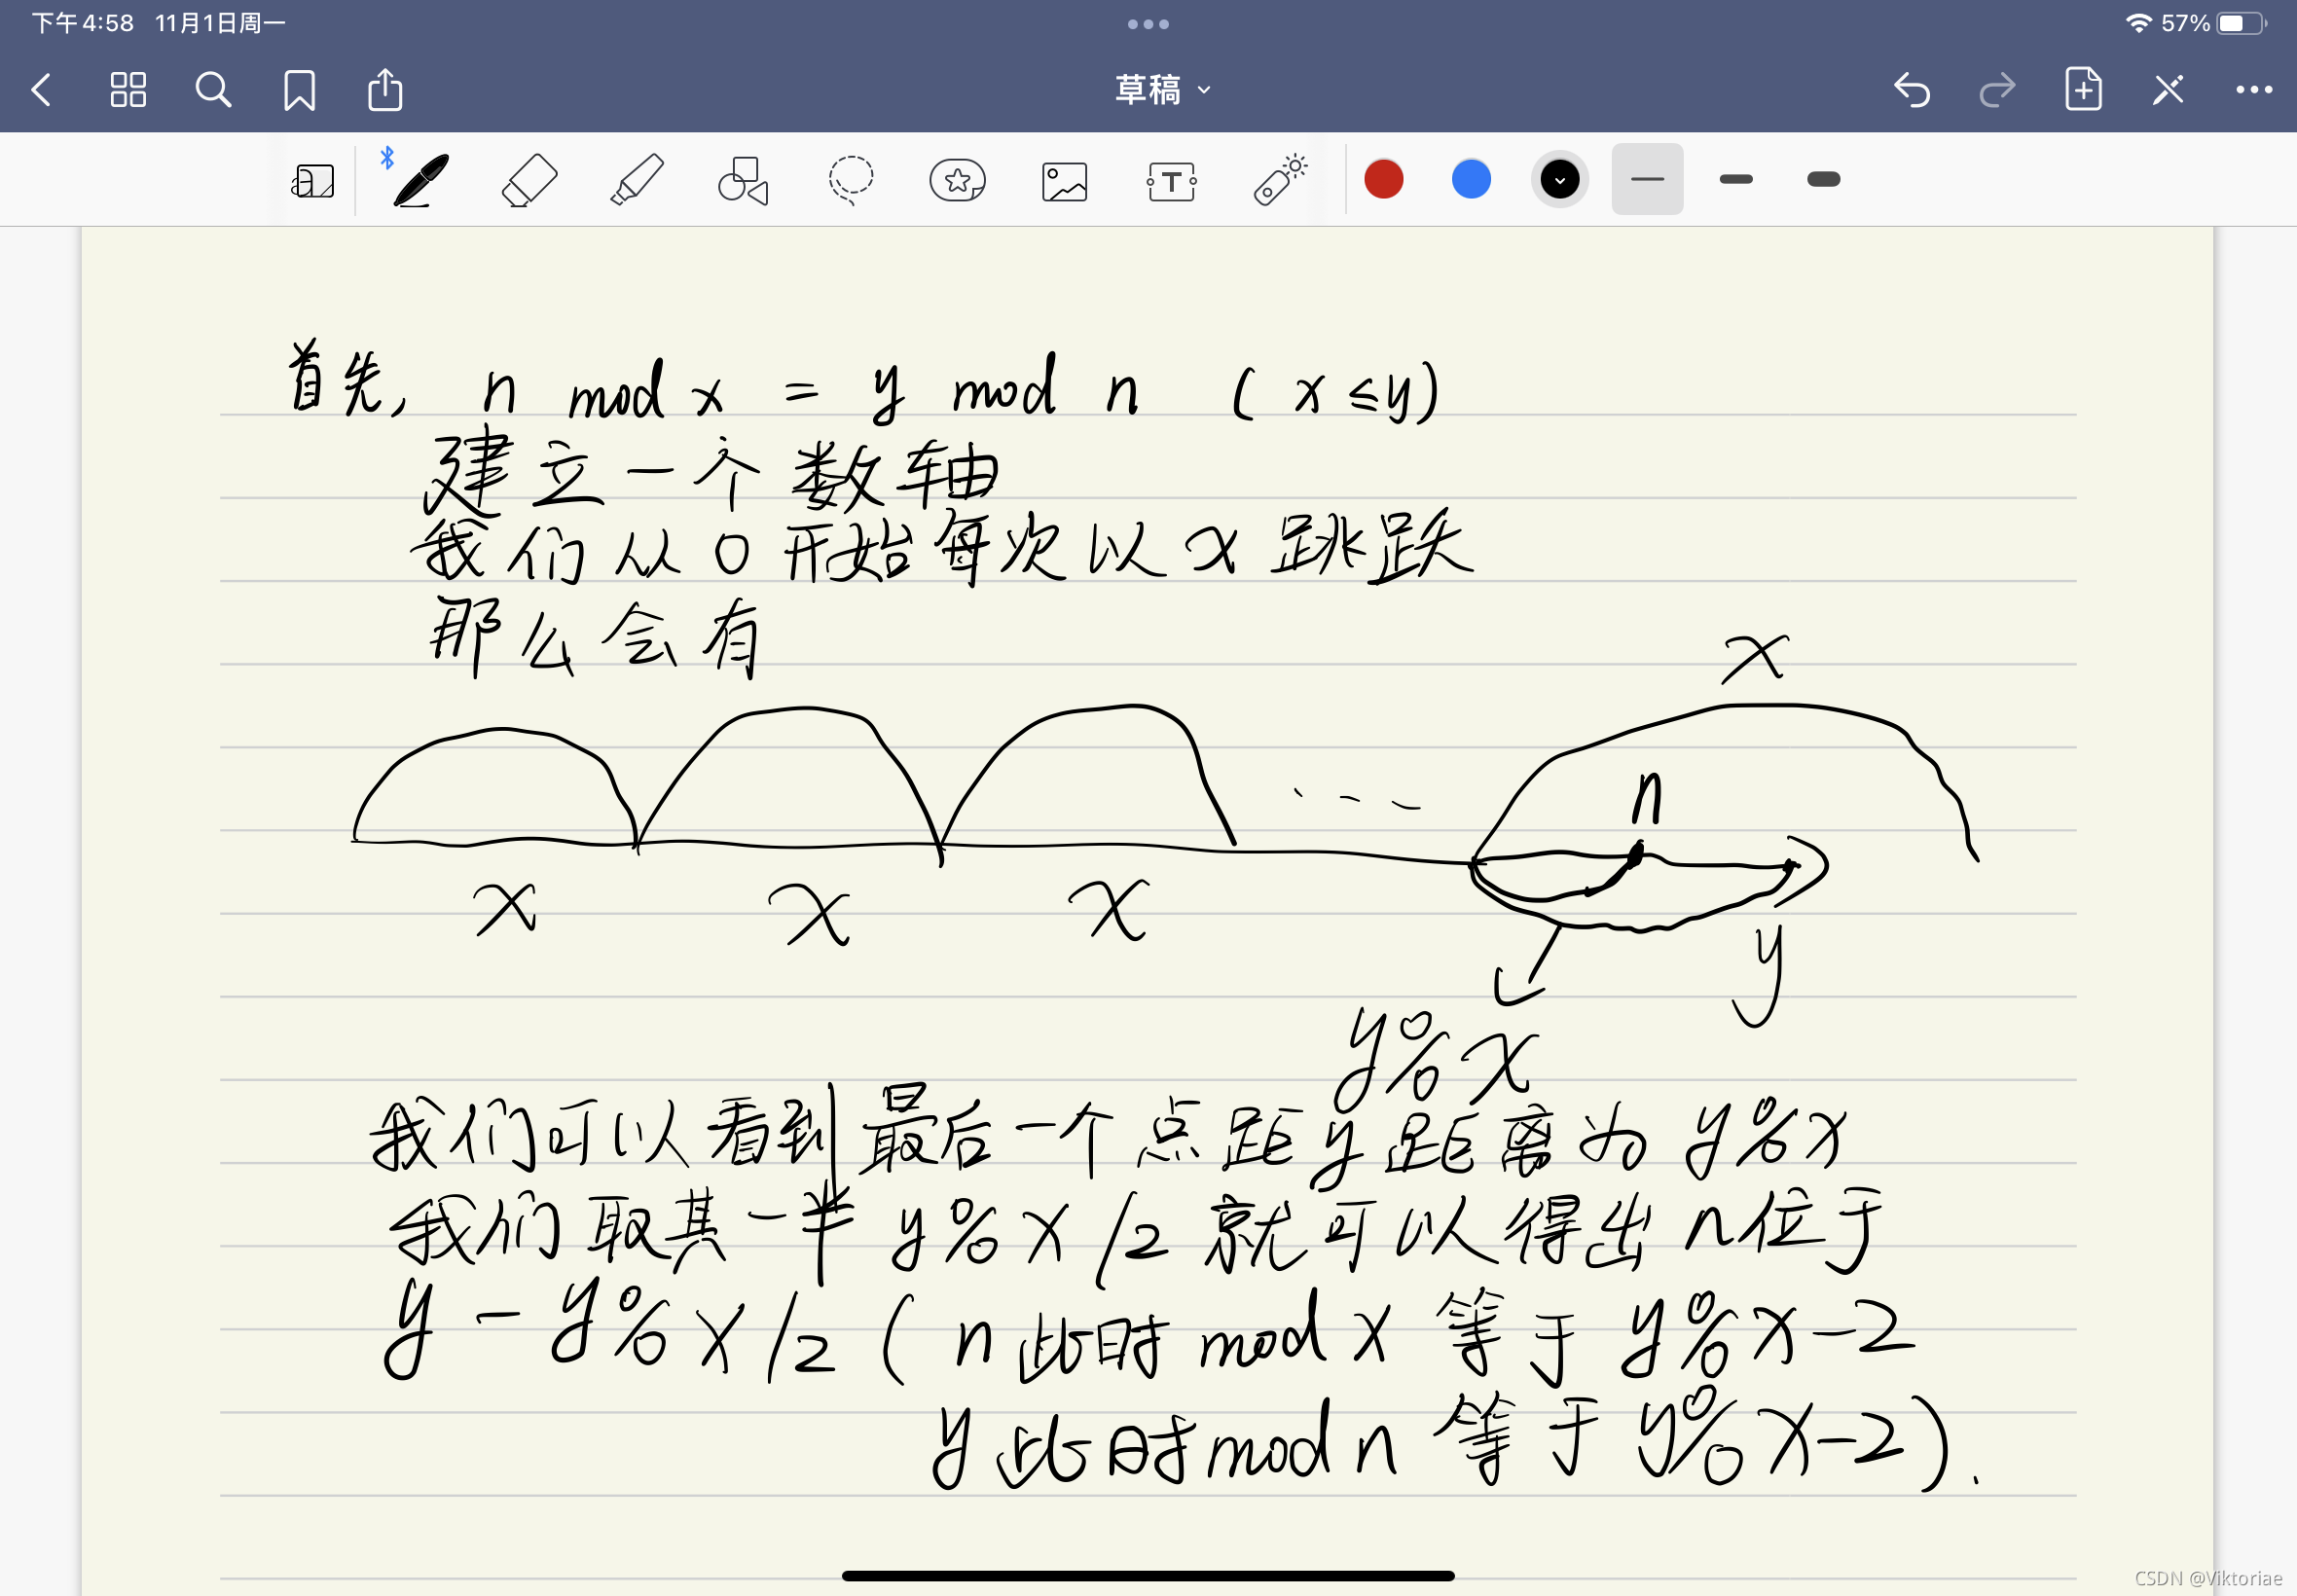 下午4:58 11月1日周一
57%
草稿
首先, n mod x = y mod n ( x ≤y)
建立一个数轴
我们从0开始每次以x跳跃
那么会有
x
n
x x x
y
y%x
我们可以看到最后一个点距y距离为y%x
我们取其一半y%x/2就可以得出n位于
y-y%x/2(n此时mod x等于y%x-2
y此时mod n等于y%x-2).
CSDN @Viktoriae